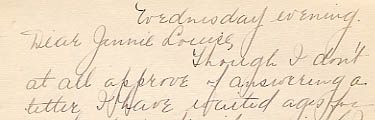 Wednesday evening.
Dear Jennie Louise,
Though I don't
at all approve of answering a
letter I have waited ages for